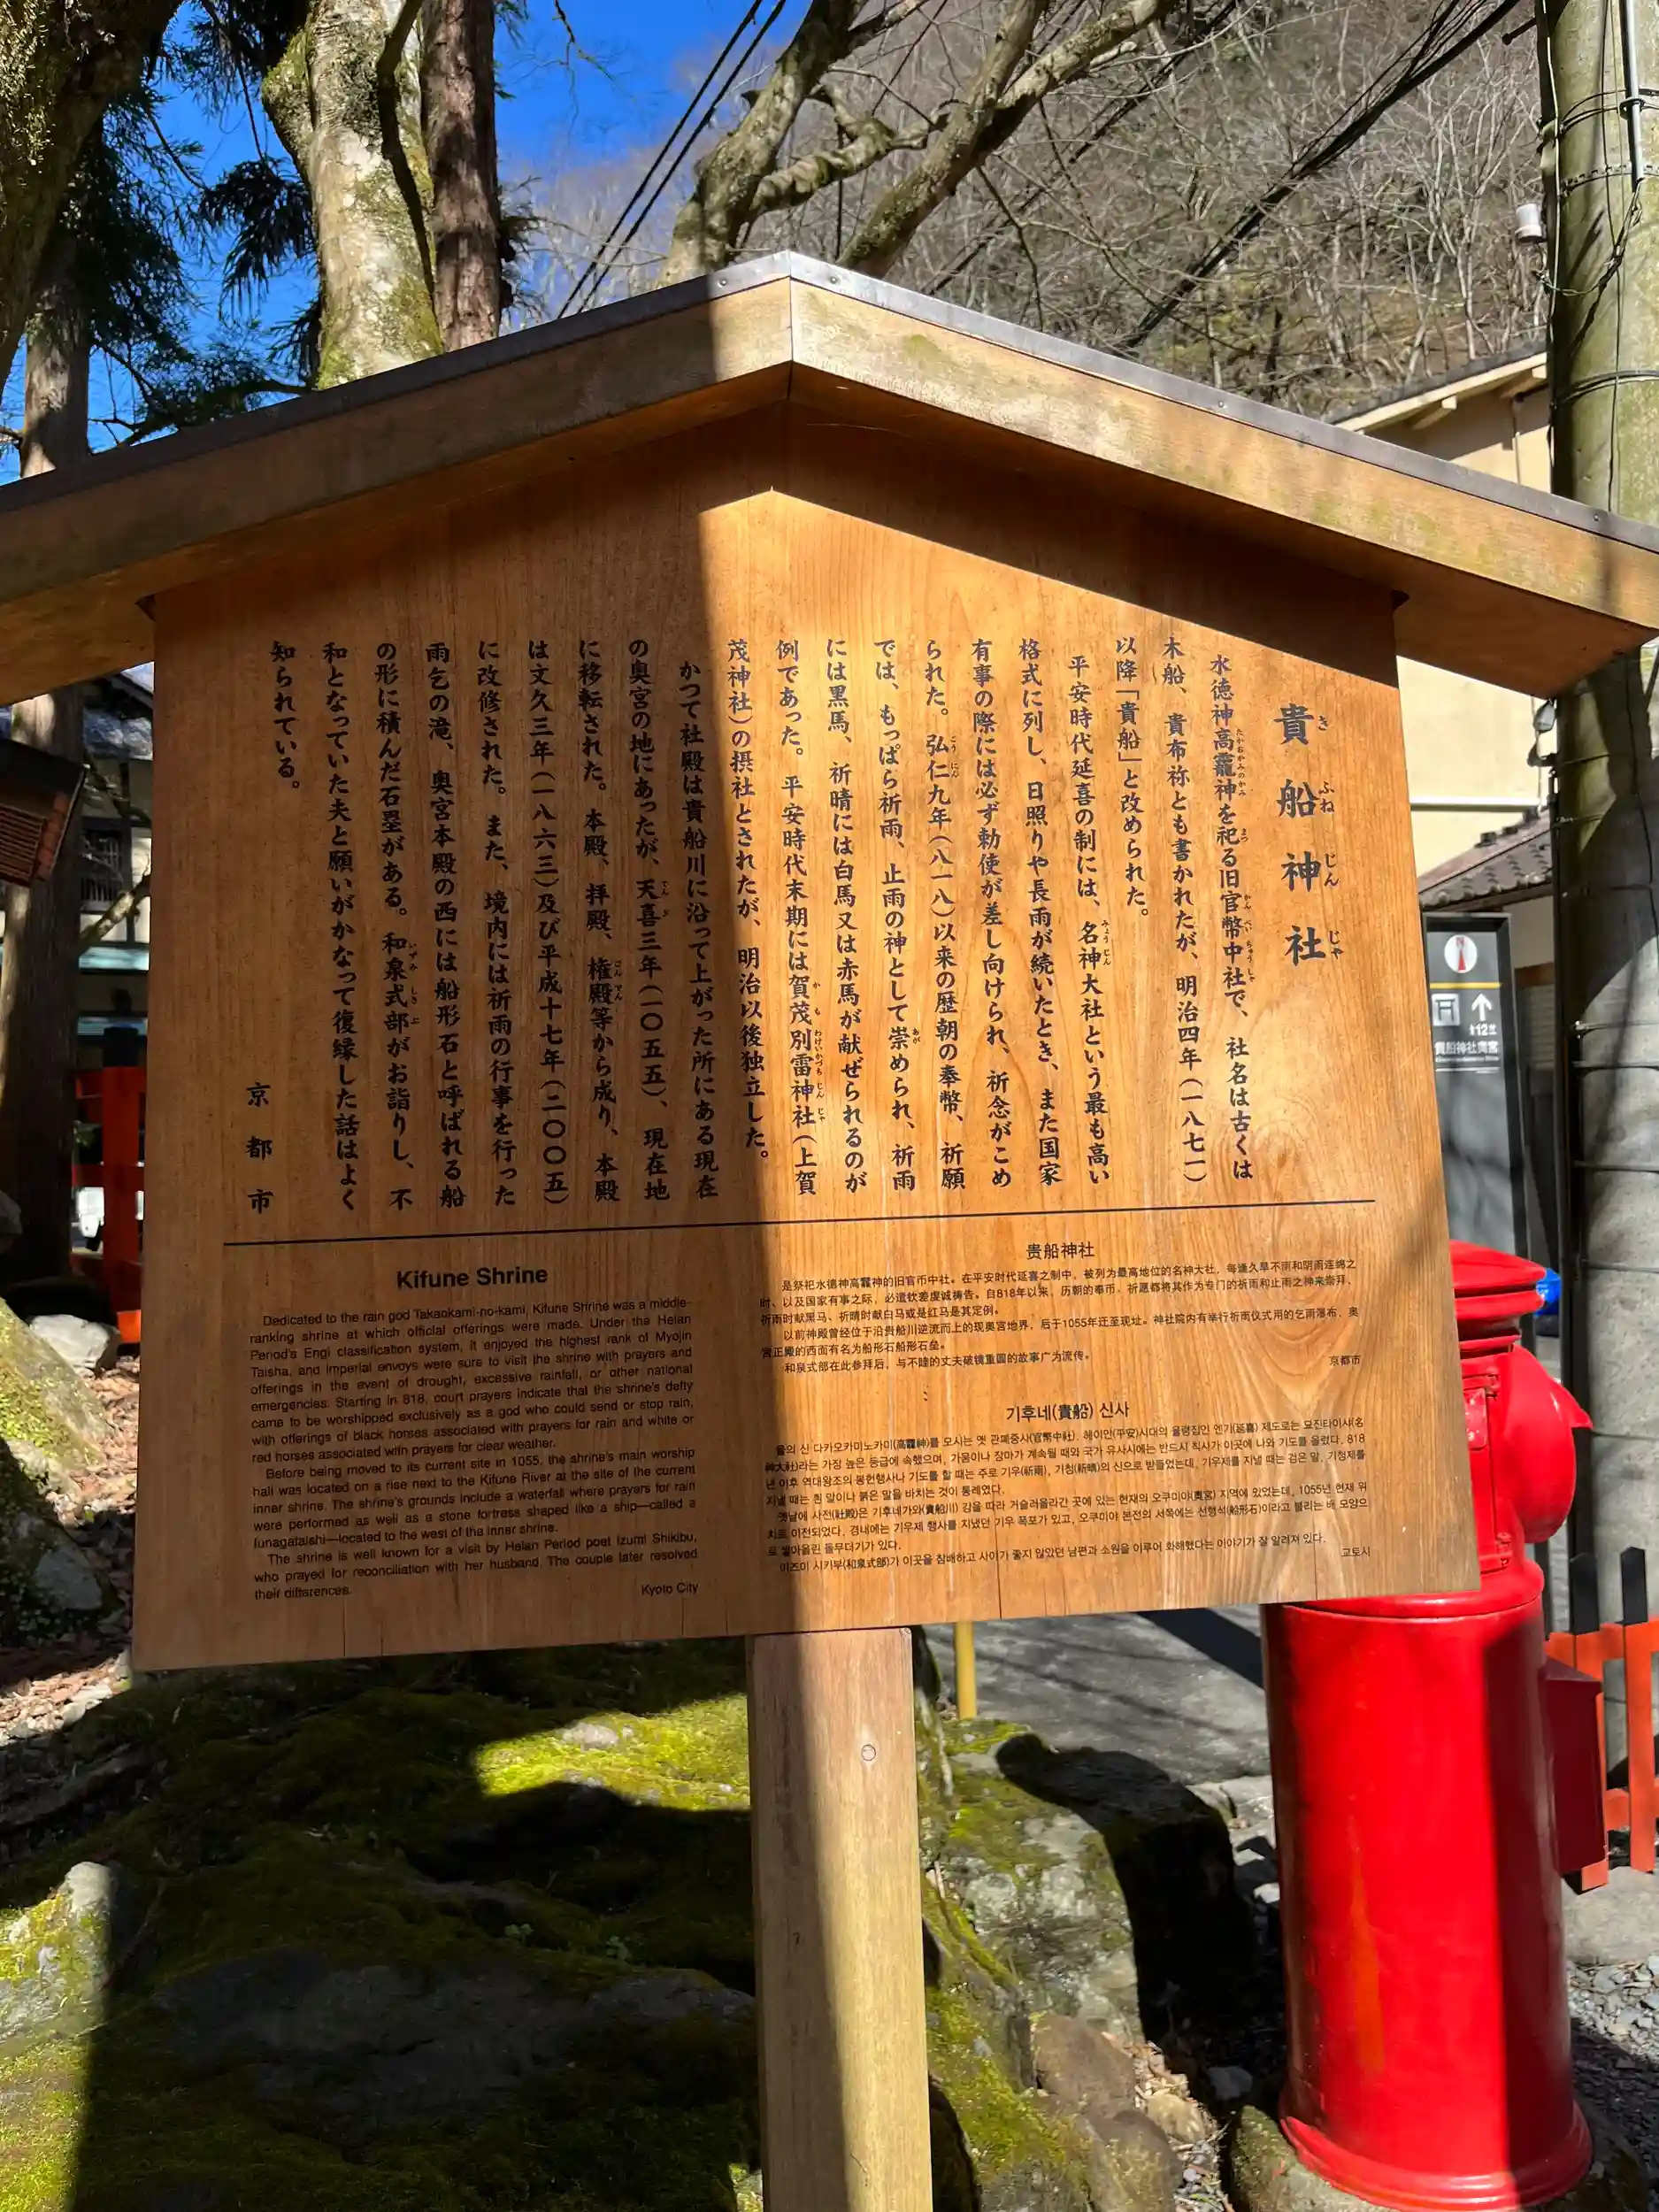 貴船神社
水徳神高龗神を祀る旧官幣中社で、社名は古くは
木船、貴布祢とも書かれたが、明治四年(一八七一)
以降「貴船」と改められた。
平安時代延喜の制には、名神大社という最も高い
格式に列し、日照りや長雨が続いたとき、また国家
有事の際には必ず勅使が差し向けられ、祈念がこめ
られた。弘仁九年(八一八)以来の歴朝の奉幣、祈願
では、もっぱら祈雨、止雨の神として崇められ、祈雨
には黒馬、祈晴には白馬又は赤馬が献ぜられるのが
例であった。平安時代末期には賀茂別雷神社(上賀
茂神社)の摂社とされたが、明治以後独立した。
かつて社殿は貴船川に沿って上がった所にある現在
の奥宮の地にあったが、天喜三年(一〇五五)、現在地
に移転された。本殿、拝殿、権殿等から成り、本殿
は文久三年(一八六三)及び平成十七年(二〇〇五)
に改修された。また、境内には祈雨の行事を行った
雨乞の滝、奥宮本殿の西には船形石と呼ばれる船
の形に積んだ石塁がある。和泉式部がお詣りし、不
和となっていた夫と願いがかなって復縁した話はよく
知られている。
京都市
Kifune Shrine
Dedicated to the rain god Takaokami-no-kami, Kifune Shrine was a middle-
ranking shrine at which official offerings were made. Under the Heian
Period's Engi classification system, it enjoyed the highest rank of Myojin
Taisha, and imperial envoys were sure to visit the shrine with prayers and
offerings in the event of drought, excessive rainfall, or other national
emergencies. Starting in 818, court prayers indicate that the shrine's deity
came to be worshipped exclusively as a god who could send or stop rain,
with offerings of black horses associated with prayers for rain and white or
red horses associated with prayers for clear weather.
Before being moved to its current site in 1055, the shrine's main worship
hall was located on a rise next to the Kifune River at the site of the current
inner shrine. The shrine's grounds include a waterfall where prayers for rain
were performed as well as a stone fortress shaped like a ship—called a
funagataishi—located to the west of the inner shrine.
The shrine is well known for a visit by Heian Period poet Izumi Shikibu,
who prayed for reconciliation with her husband. The couple later resolved
their differences.
Kyoto City
贵船神社
是祭祀水德神高龗神的旧官币中社。在平安时代延喜之制中，被列为最高地位的名神大社，每逢久旱不雨和阴雨连绵之
时，以及国家有事之际，必遣钦差虔诚祷告。自818年以来，历朝的奉币、祈愿都将其作为专门的祈雨和止雨之神来崇拜，
祈雨时献黑马、祈晴时献白马或是红马是其定例。
以前神殿曾经位于沿贵船川逆流而上的现奥宫地界，后于1055年迁至现址。神社院内有举行祈雨仪式用的乞雨瀑布，奥
宫正殿的西面有名为船形石船形石垒。
和泉式部在此参拜后，与不睦的丈夫破镜重圆的故事广为流传。
京都市
기후네(貴船) 신사
물의 신 다카오카미노카미(高龗神)를 모시는 옛 관폐중사(官幣中社). 헤이안(平安)시대의 율령집인 엔기(延喜) 제도로는 묘진타이샤(名
神大社)라는 가장 높은 등급에 속했으며, 가뭄이나 장마가 계속될 때와 국가 유사시에는 반드시 칙사가 이곳에 나와 기도를 올렸다. 818
년 이후 역대왕조의 봉헌행사나 기도를 할 때는 주로 기우(祈雨), 기청(祈晴)의 신으로 받들었는데, 기우제를 지낼 때는 검은 말, 기청제를
지낼 때는 흰 말이나 붉은 말을 바치는 것이 통례였다.
옛날에 사전(社殿)은 기후네가와(貴船川) 강을 따라 거슬러올라간 곳에 있는 현재의 오쿠미야(奧宮) 지역에 있었는데, 1055년 현재 위
치로 이전되었다. 경내에는 기우제 행사를 지냈던 기우 폭포가 있고, 오쿠미야 본전의 서쪽에는 선형석(船形石)이라고 불리는 배 모양으
로 쌓아올린 돌무더기가 있다.
이즈미 시키부(和泉式部)가 이곳을 참배하고 사이가 좋지 않았던 남편과 소원을 이루어 화해했다는 이야기가 잘 알려져 있다.
교토시
貴船神社奥宮